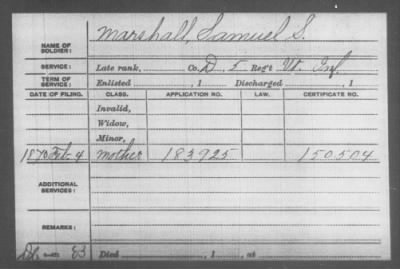 NAME OF SOLDIER: Marshall, Samuel S.
SERVICE: Late rank, Co. D, 5 Reg't Vt. Inf.
TERM OF SERVICE: Enlisted , 1 Discharged , 1
DATE OF FILING. CLASS. APPLICATION NO. LAW. CERTIFICATE NO.
Invalid,
Widow,
Minor,
Feb. 4 mother 183925 150504
ADDITIONAL SERVICES:
REMARKS:
Died , 1 , at